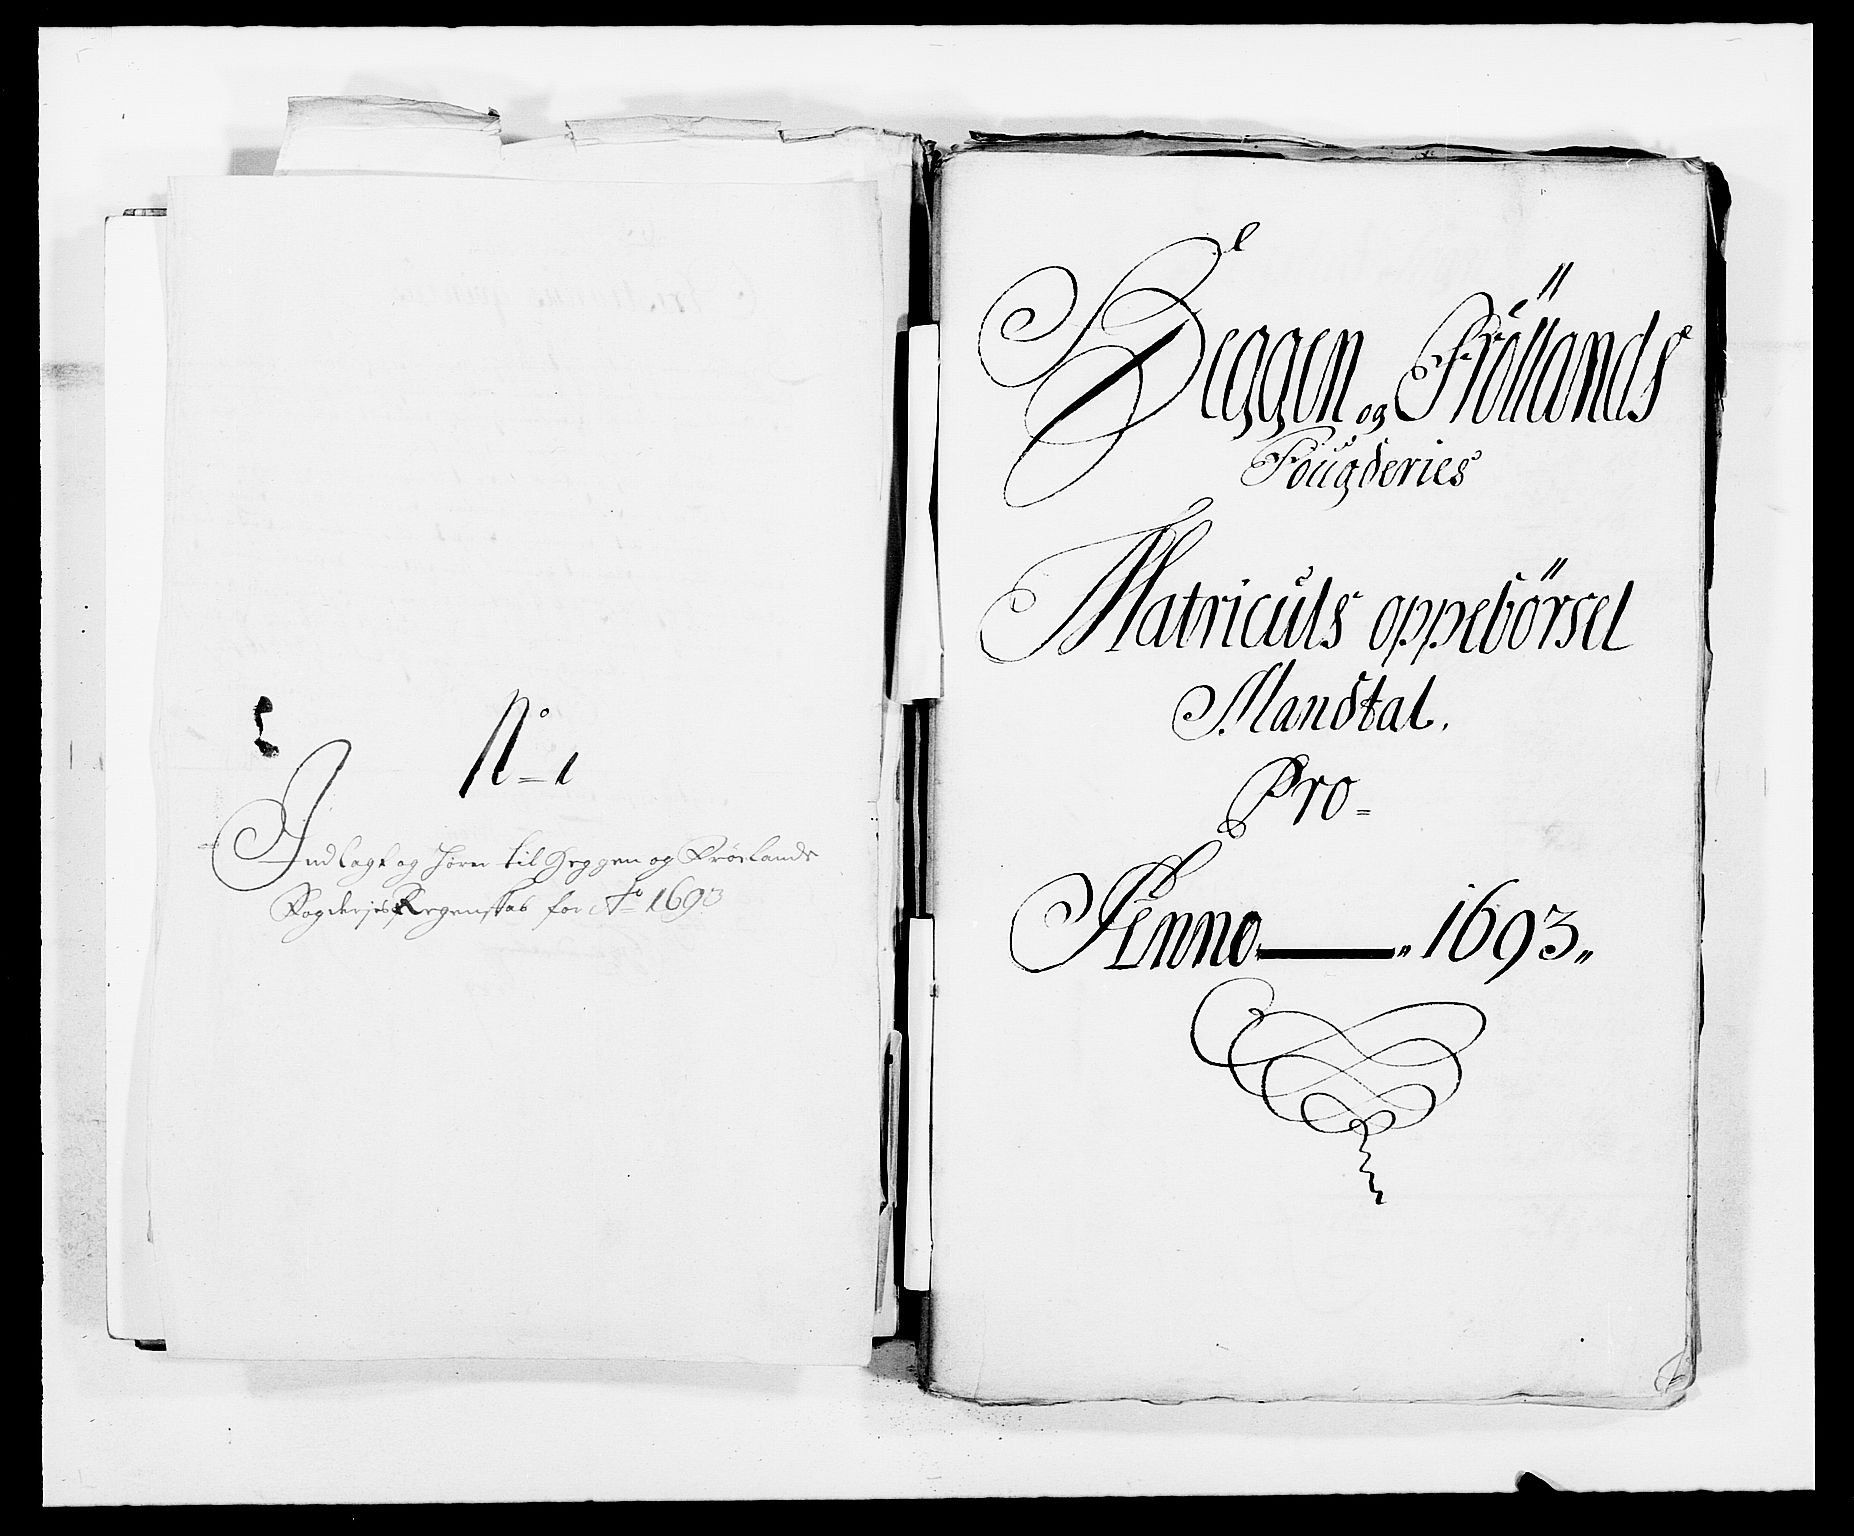 No 1
Indlagt og hører til Heggen og Frøelands
Fogderjes Regenskab for Ao 1693
Heggen og Fröllands
Fougderies
Matriculs oppebörsel
Mandtal.
Pro=
Anno 1693